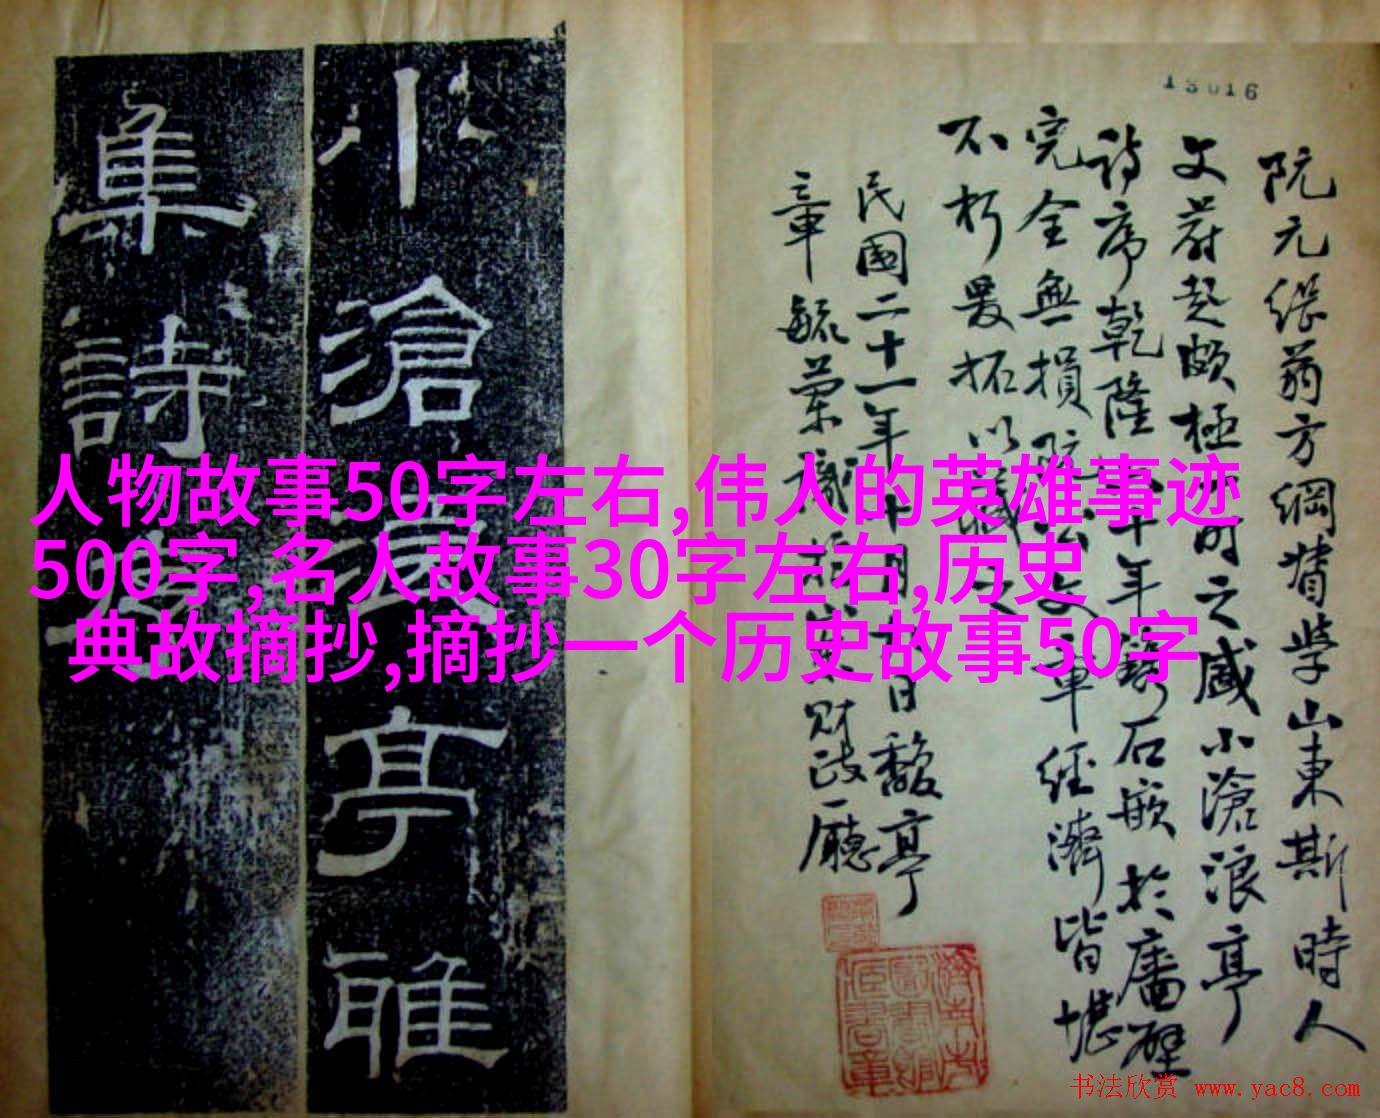 人物故事50字左右,伟人的英雄事迹
500字,名人故事30字左右,历史
典故摘抄,摘抄一个历史故事50字
小滄浪亭雅
集詩序
13016
阮元繼翁方綱督学山東斯時人
文蔚起頗極一時之盛小滄浪亭
詩序乾隆年石嵌於廧壁
完全無損文章經濟皆堪
不朽爰拓以
民國二十一年十月日馥亭
章毓蘭識財政廳
书法欣赏 www.yac8.com